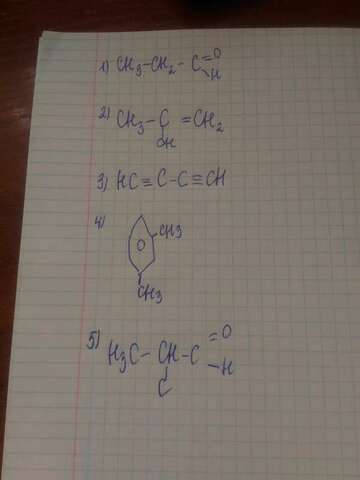 1) CH3-CH2-C=O
-H
2) CH3-C=CH2
OH
3) HC≡C-C≡CH
4)
CH3
O
CH3
5) H3C-CH-C=O
-H
C